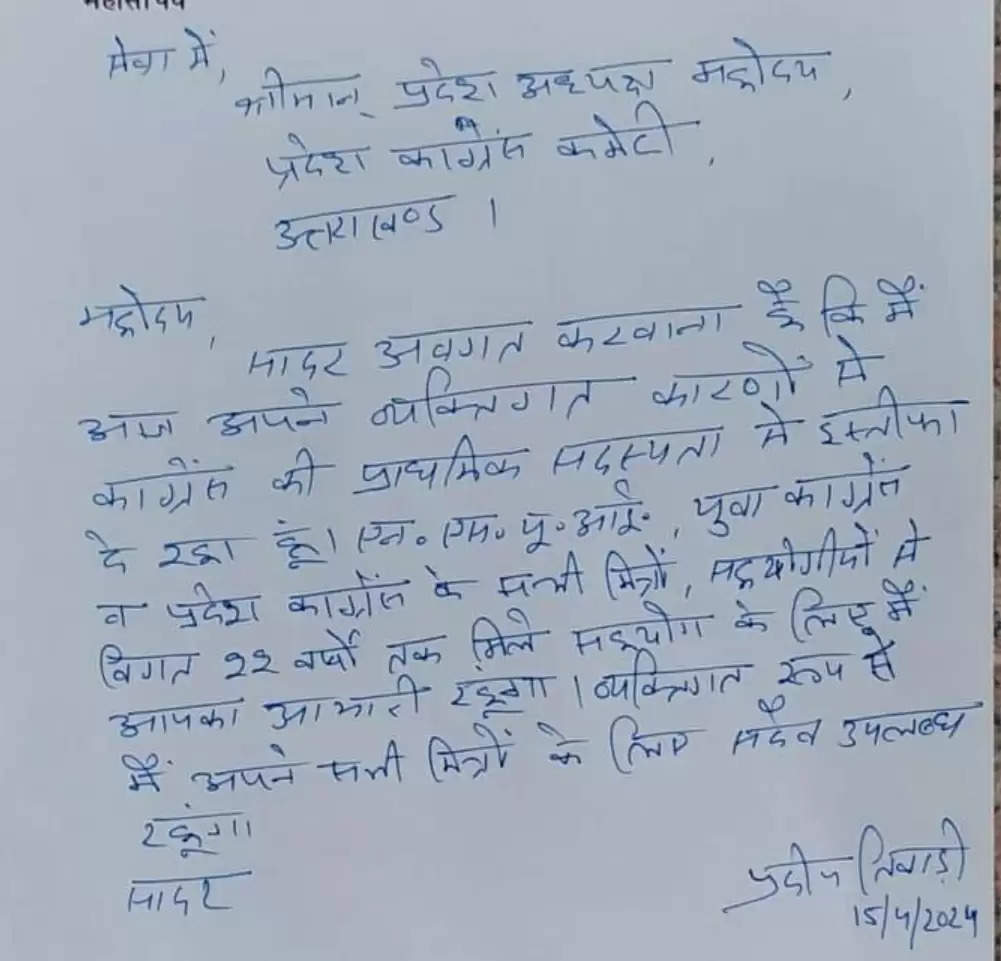 महासचिव
सेवा में,
श्रीमान् प्रदेश अध्यक्ष महोदय,
प्रदेश कांग्रेस कमेटी,
उत्तराखण्ड ।
महोदय,
सादर अवगत करवाना है कि मैं
आज अपने व्यक्तिगत कारणों से
कांग्रेस की प्राथमिक सदस्यता से इस्तीफा
दे रहा हूं। एन.एस.यू.आई., युवा कांग्रेस
व प्रदेश कांग्रेस के सभी मित्रों, सहयोगीयों से
विगत २२ वर्षों तक मिले सहयोग के लिए मैं
आपका आभारी रहूंगा । व्यक्तिगत रूप से
मैं अपने सभी मित्रों के लिए सदैव उपलब्ध
रहूंगा
सादर
प्रदीप तिवाड़ी
15/4/2024